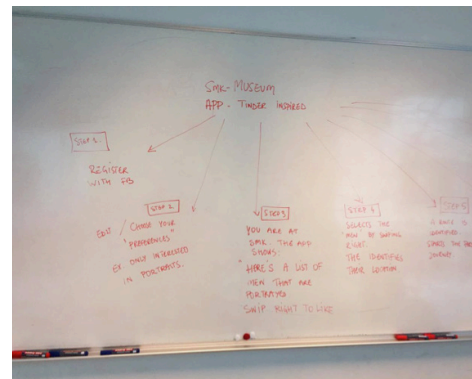 SMK-MUSEUM
APP - TINDER INSPIRED
STEP 1.
REGISTER
WITH FB
STEP 2
EDIT / CHOOSE YOUR
"PREFERENCES"
EX. ONLY INTERESTED
IN PORTRAITS.
STEP 3
YOU ARE AT
SMK. THE APP
SHOWS:
"HERE'S A LIST OF
MEN THAT ARE
PORTRAYED
SWIP RIGHT TO LIKE
STEP 4
SELECTS THE
"MEN" BY SWIPING
RIGHT
THIS IDENTIFIES
THEIR LOCATION
STEP 5
A ROUTE IS
IDENTIFIED
STARTS THE
JOURNEY